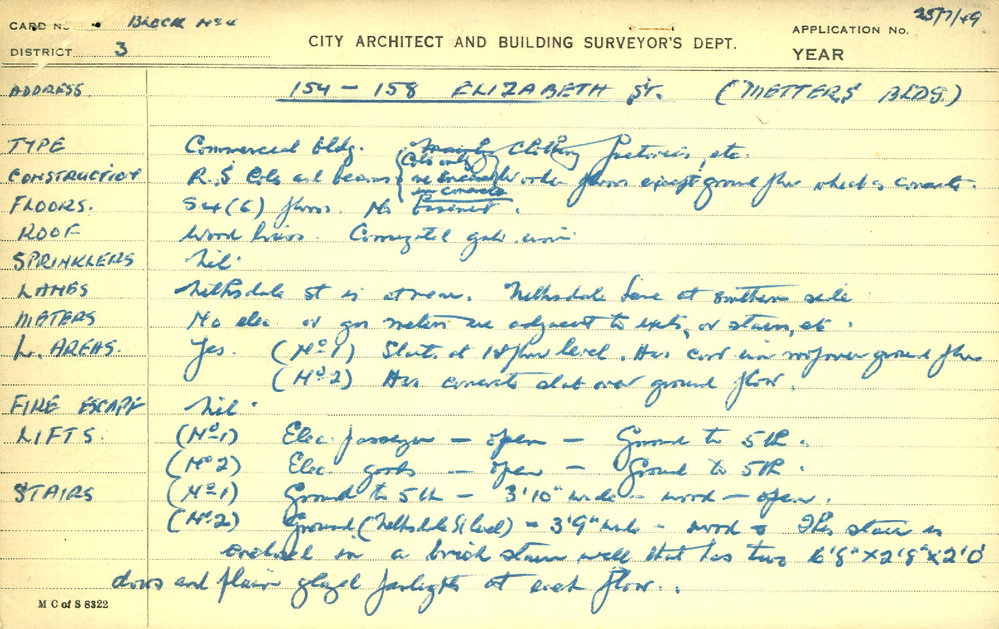 CARD No. BLOCK No 4 25/7/49
APPLICATION No.
DISTRICT 3 CITY ARCHITECT AND BUILDING SURVEYOR'S DEPT. YEAR
ADDRESS. 154 - 158 ELIZABETH ST. (METTERS BLDG.)
TYPE Commercial bldg. mainly Clothing factories, etc.
Cols only
CONSTRUCTION R.S Cols and beams are encased Wooden floors except ground floor which is concrete.
in concrete
FLOORS. Six (6) floors. No Basement.
ROOF Wood Corrugated galv. iron
SPRINKLERS Nil.
LANES Nithsdale St is at rear. Nithsdale Lane at southern side
METERS No elec. or gas meters are adjacent to exits, or stairs, etc.
L. AREAS. Yes. (No 1) Starts at 1st floor level. Has corr iron roof over ground floor
(No 2) Has concrete slab over ground floor.
FIRE ESCAPE Nil.
LIFTS. (No 1) Elec. passenger - open - Ground to 5th.
(No 2) Elec. goods - open - Ground to 5th.
STAIRS (No 1) Ground to 5th - 3'10" wide - wood - open.
(No 2) Ground (Nithsdale St level) - 3'9" wide - wood - This stair is
enclosed in a brick stair well that has two 6'8" X 2'8" X 2'0
doors and plain glazed fanlights at each floor.
M C of S 8322